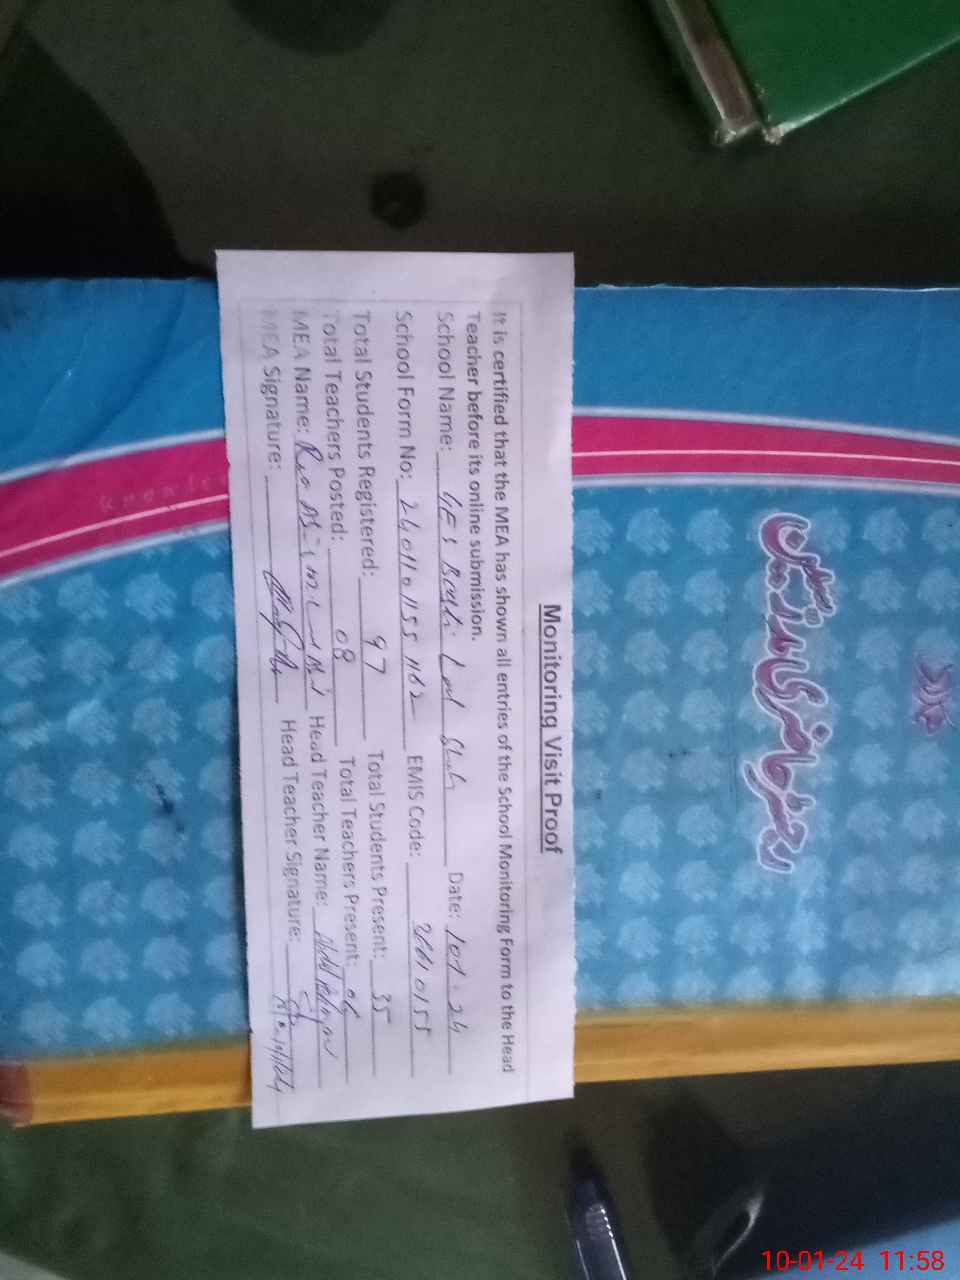 Monitoring Visit Proof
It is certified that the MEA has shown all entries of the School Monitoring Form to the Head
Teacher before its online submission.
School Name: Lal Shah Date: 10-1-24
School Form No: 24011011551162 EMIS Code: 36610155
Total Students Registered: 97 Total Students Present: 35
Total Teachers Posted: 08 Total Teachers Present:
MEA Name: Head Teacher Name: Abdul
MEA Signature: Head Teacher Signature:
رجسٹر حاضری مدرسین
10-01-24 11:58